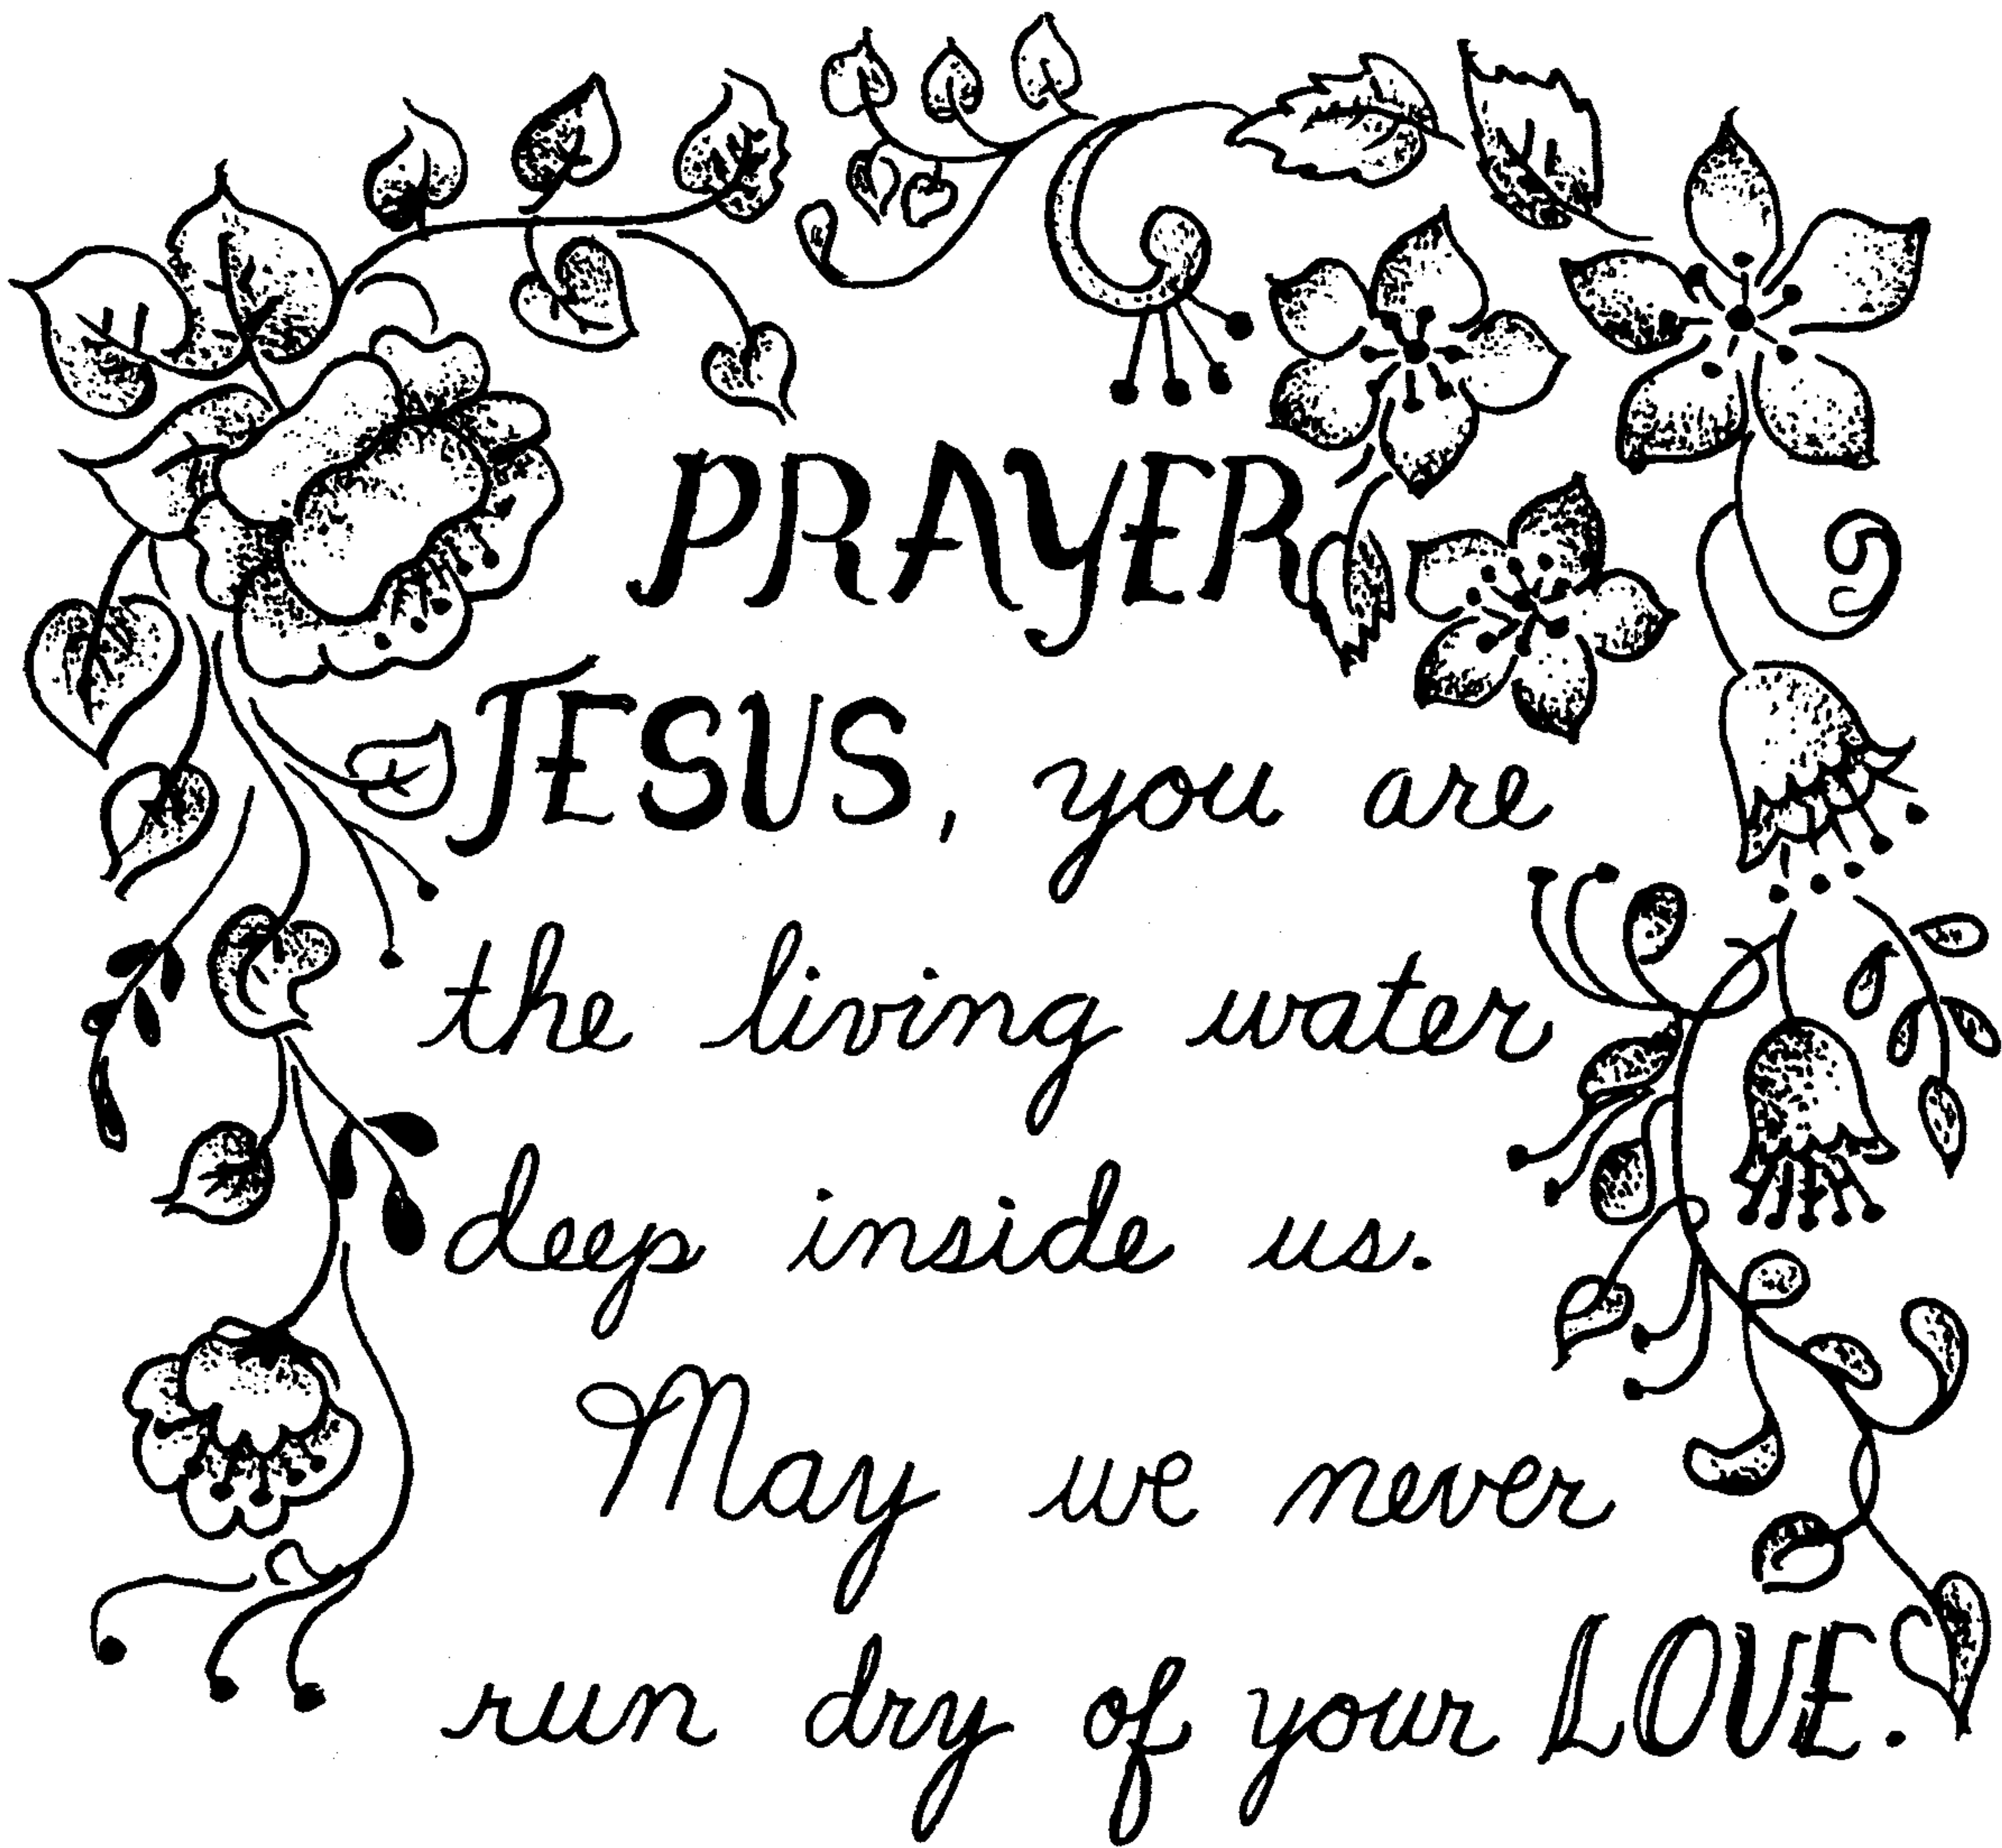 PRAYER
JESUS, you are
the living water
deep inside us.
May we never
run dry of your LOVE.